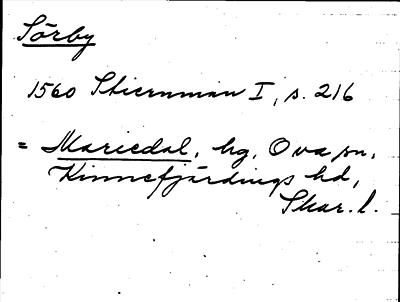 Sörby
1560 Stiernman I, s. 216
= Mariedal, hg, Ova sn,
Kinnefjärdings hd,
Skar. l.